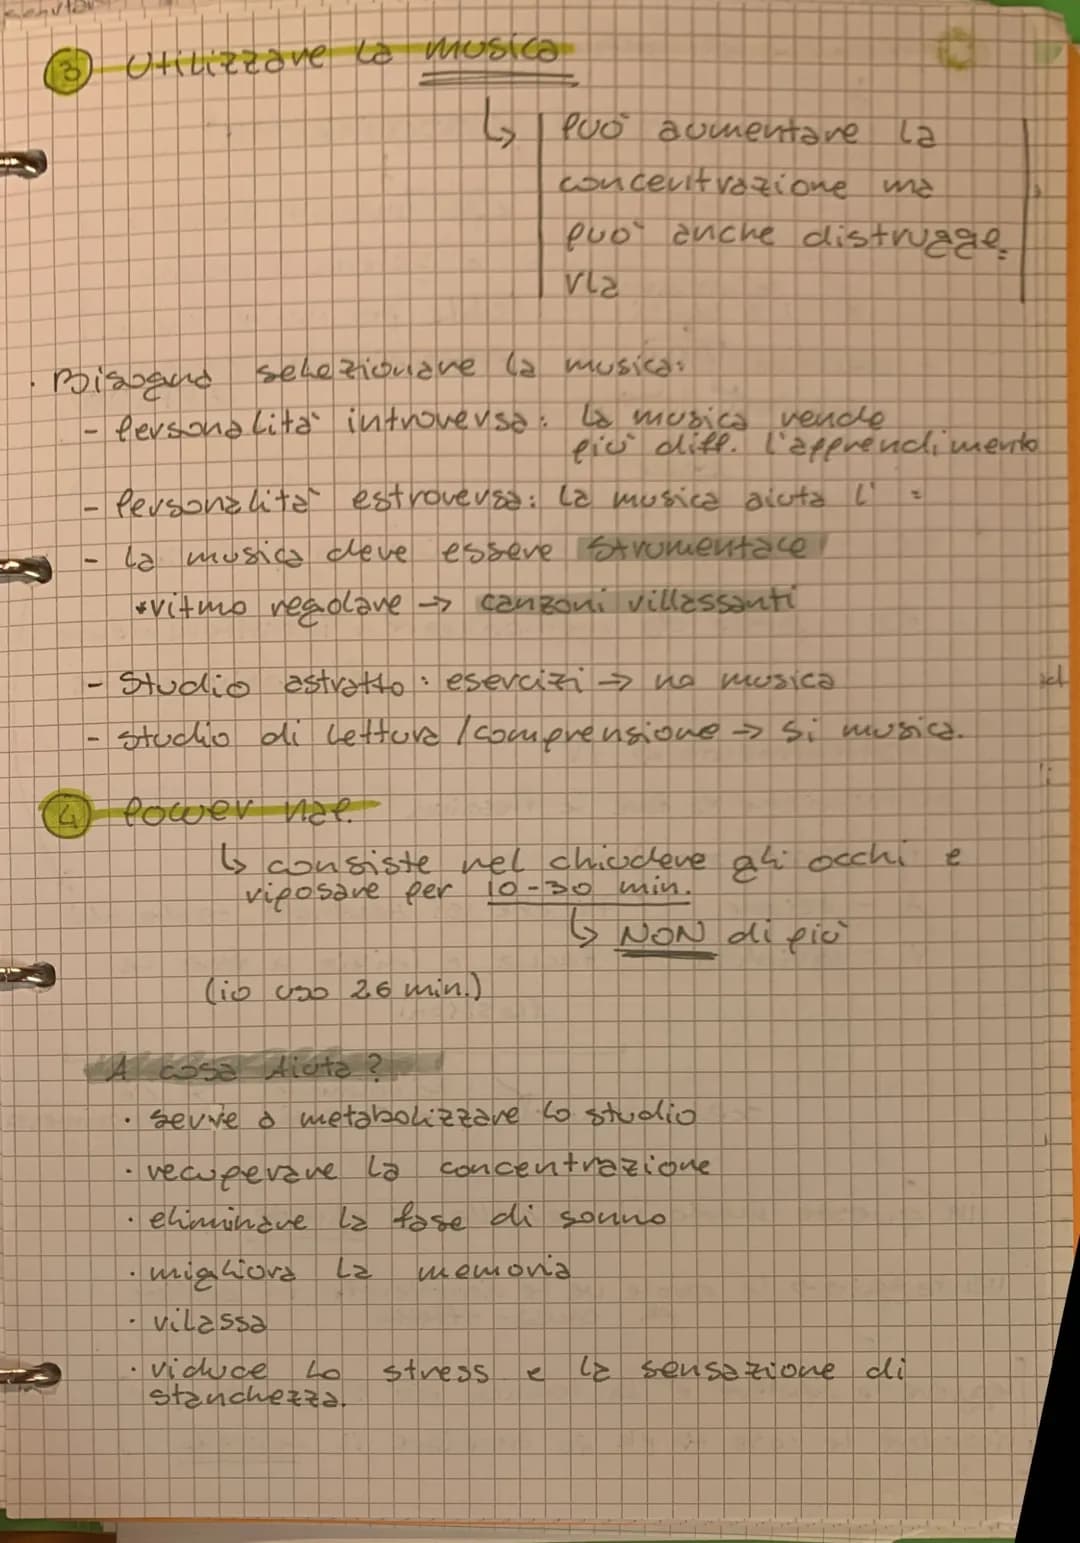 3 Utilizzare la musica
↳ può aumentare la
concentrazione ma
può anche distrugge-
rla
· Bisogna selezionare la musica:
- Personalità introversa: la musica rende
più diff. l'apprendimento
- Personalità estroversa: la musica aiuta l' =
- la musica deve essere strumentale
*ritmo regolare → canzoni rillassanti
- Studio astratto: esercizi → no musica
- studio di lettura/comprensione → si musica.
4 Power nap.
↳ consiste nel chiudere gli occhi e
riposare per 10-30 min.
↳ NON di più
(io uso 26 min.)
A cosa Aiuta?
· serve a metabolizzare lo studio
· recuperare la concentrazione
· eliminare la fase di sonno
· migliora la memoria
· rilassa
· riduce lo stress e la sensazione di
stanchezza.